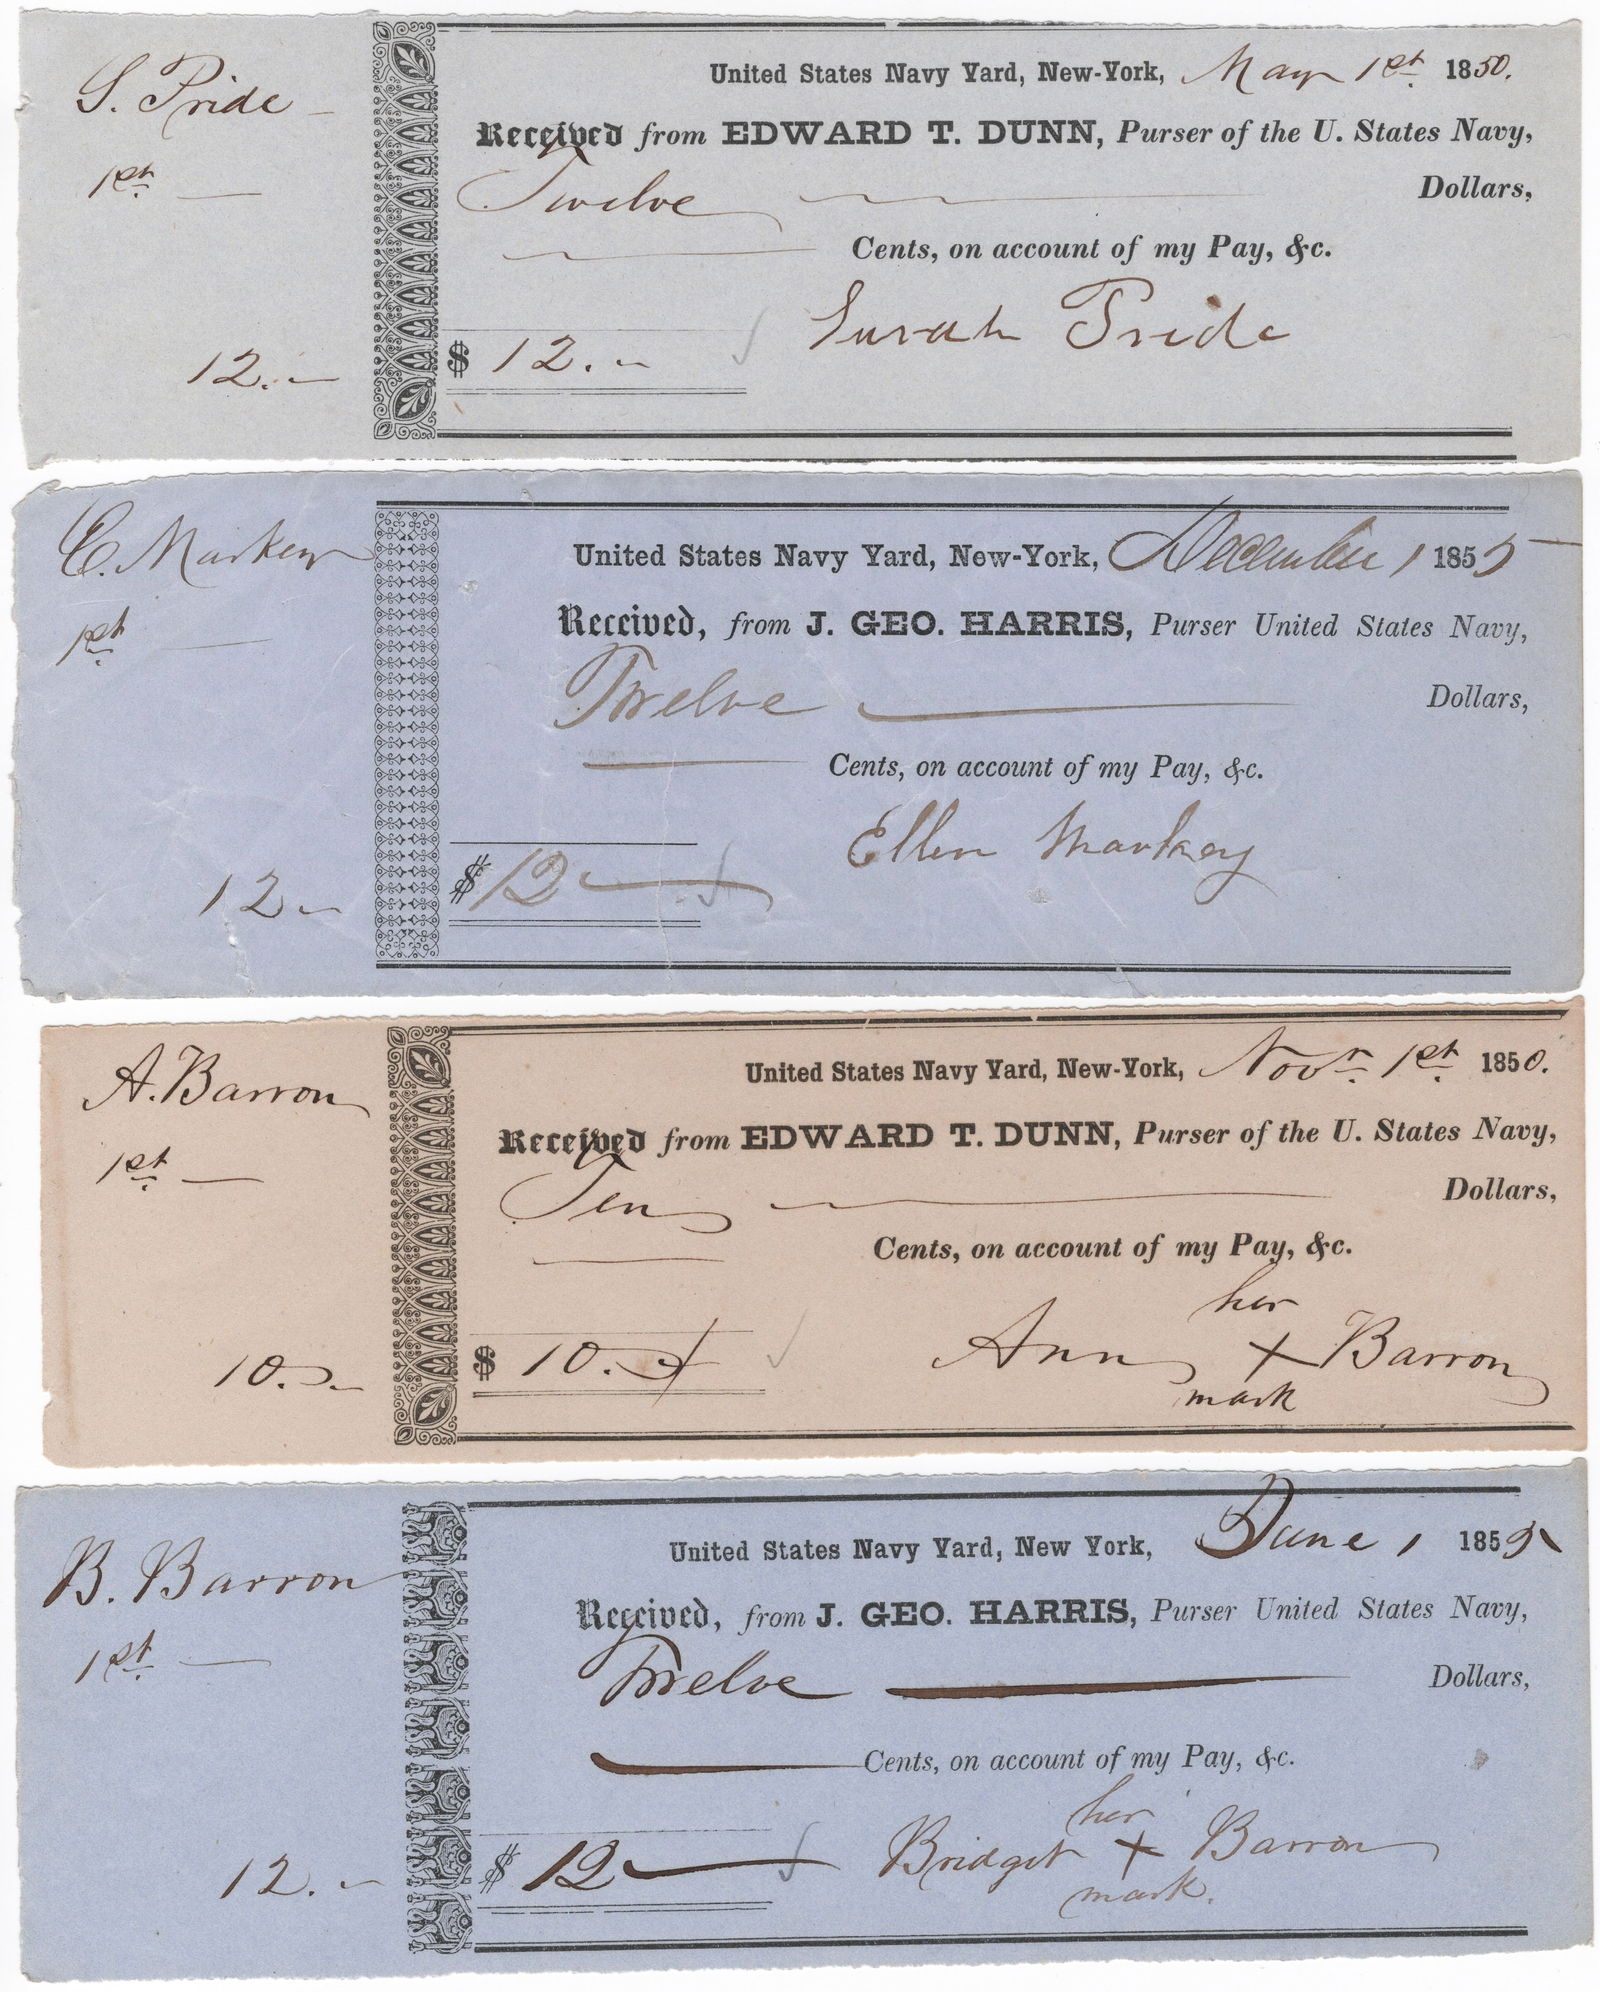 S. Pride
1st.
12.
United States Navy Yard, New-York, May 1st. 1850.
Received from EDWARD T. DUNN, Purser of the U. States Navy,
Twelve Dollars,
Cents, on account of my Pay, &c.
Sarah Pride
$ 12.
E. Markey
1st.
12
United States Navy Yard, New-York, December 1 1855
Received, from J. GEO. HARRIS, Purser United States Navy,
Twelve Dollars,
Cents, on account of my Pay, &c.
Ellen Markey
$ 12
A. Barron
1st.
10.
United States Navy Yard, New-York, Novr. 1st. 1850.
Received from EDWARD T. DUNN, Purser of the U. States Navy,
Ten Dollars,
Cents, on account of my Pay, &c.
her
Ann X Barron
mark
$ 10.
B. Barron
1st.
12.
United States Navy Yard, New York, June 1 185
Received, from J. GEO. HARRIS, Purser United States Navy,
Twelve Dollars,
Cents, on account of my Pay, &c.
her
Bridget X Barron
mark.
$ 12